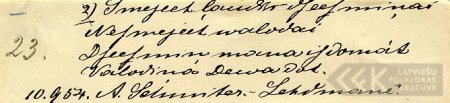 2) Smejeet laudis dseesminai
Nesmejeet walodai
23. Dseesmin mana isdomat
Walodina Dewa dot.
10.954. A. Schmiter. - Lehdmanē.
LATVIEŠU
FOLKLORAS
KRĀTUVE